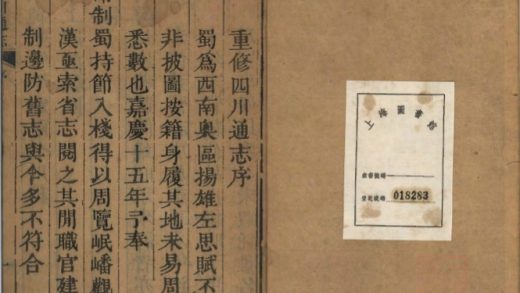 重修四川通志序
蜀爲西南奥區揚雄左思賦不
非披圖按籍身履其地未易周
悉數也嘉慶十五年予奉
制蜀持節入棧得以周覽岷嶓觀
漢亟索省志閱之其間職官建
制邊防舊志與今多不符合
上海圖書館
018283